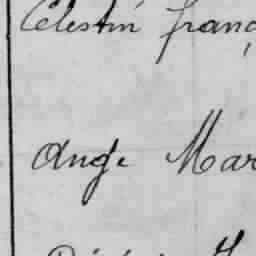 Célestin franç
Ange Mar